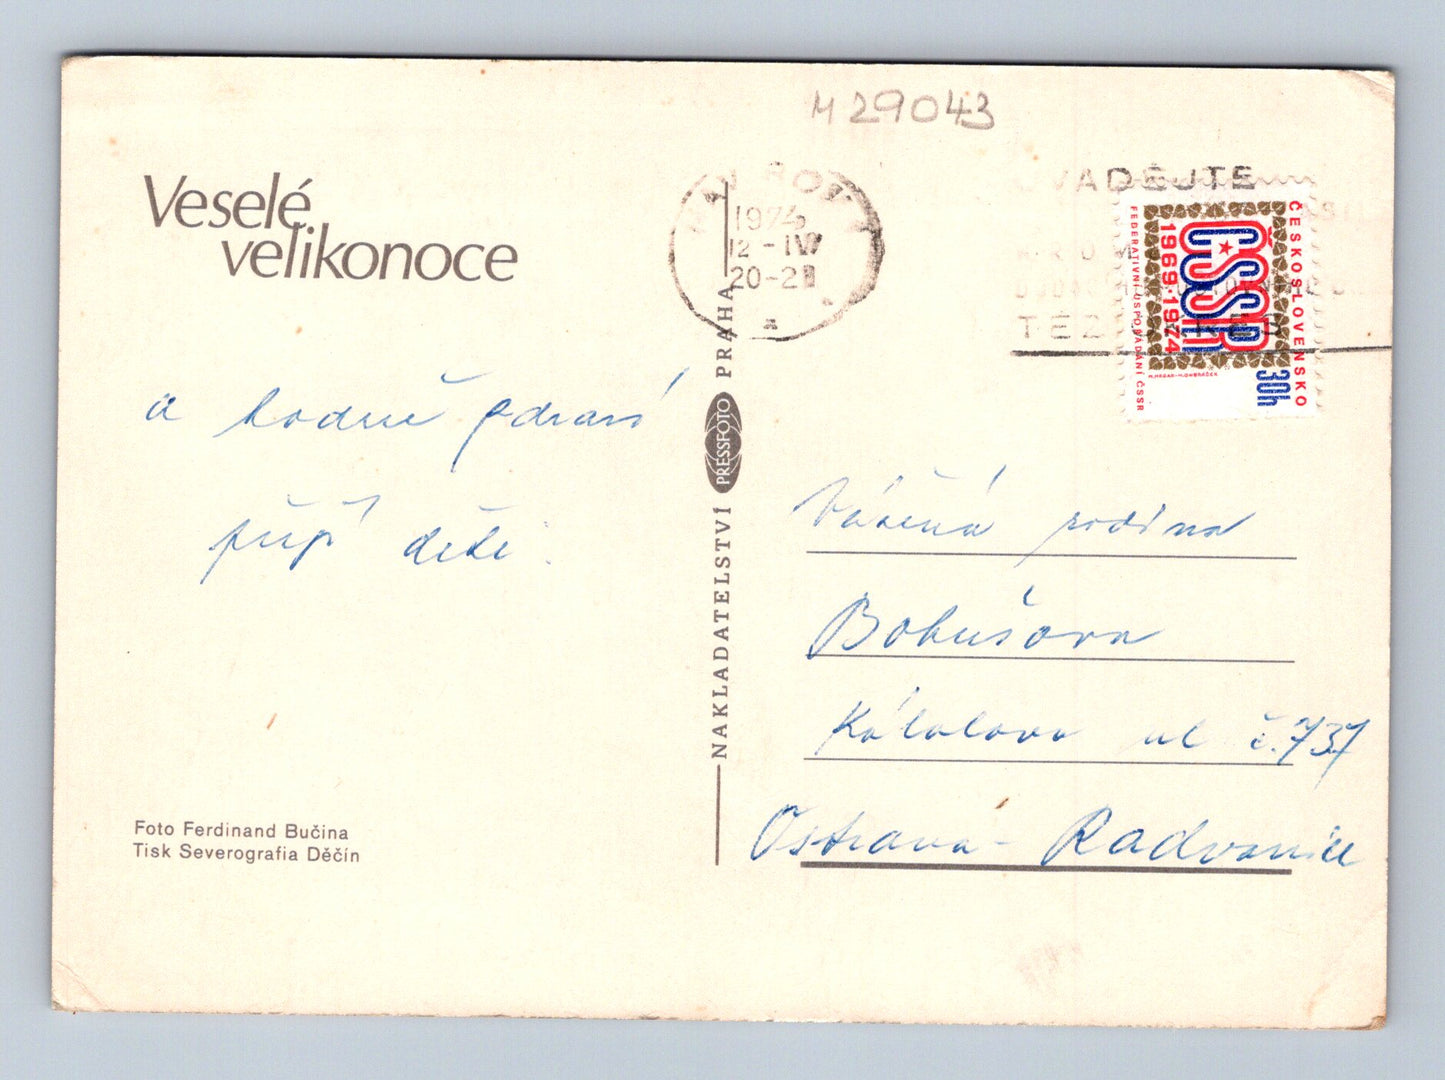 M 29043
Veselé
velikonoce
a hodně zdraví
přejí děti.
Foto Ferdinand Bučina
Tisk Severografia Děčín
NAKLADATELSTVÍ PRESSFOTO PRAHA
1974
12 -IV
20-21
UVÁDĚJTE
TÉŽ
ČESKOSLOVENSKO
FEDERATIVNÍ USPOŘÁDÁNÍ ČSSR
1969·1974
ČSSR
30h
Vážená rodina
Bohušova
Kálalova ul č. 737
Ostrava - Radvanice